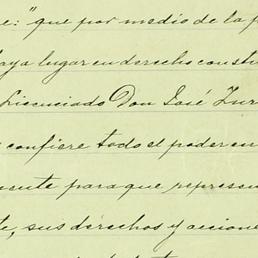 e: "que por medio de la p
haya lugar en derecho const
Licenciado Don José Zur
confiere todo el poder en
sente para que represen
te, sus derechos y accione